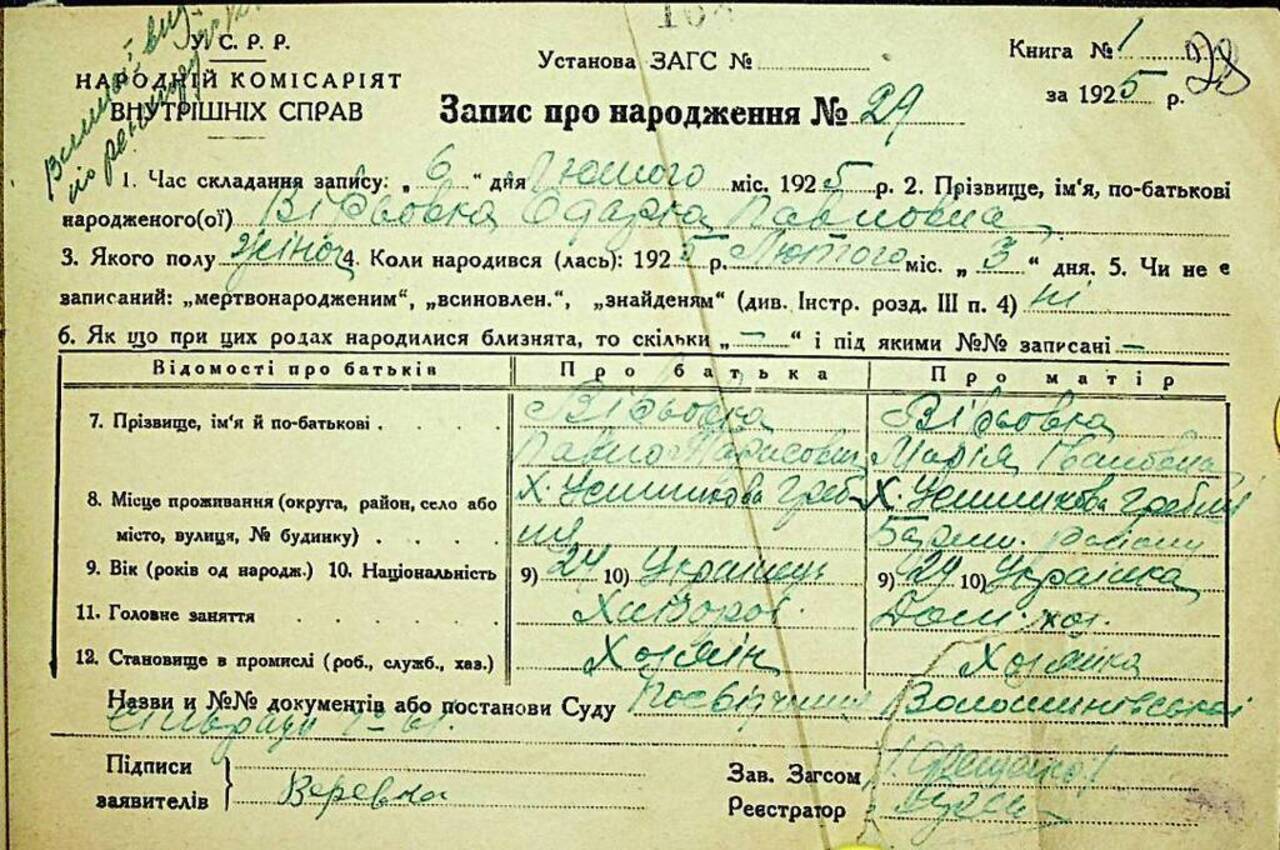 У.С.Р.Р.
НАРОДНІЙ КОМІСАРІЯТ
ВНУТРІШНІХ СПРАВ
Установа ЗАГС №
Книга № 1
за 1925 р.
28
Запис про народження № 29
1. Час складання запису: „ 6 “ дня Лютого міс. 1925 р. 2. Прізвище, ім'я, по-батькові
народженого(ої) Вірьовка Одарка Павловна
3. Якого полу жіноч 4. Коли народився (лась): 1925 р. Лютого міс. „ 3 “ дня. 5. Чи не є
записаний: „мертвонародженим“, „всиновлен.“, „знайденям“ (див. Інстр. розд. III п. 4) ні
6. Як що при цих родах народилися близнята, то скільки „ — “ і під якими №№ записані —
Відомості про батьків Про батька Про матір
7. Прізвище, ім'я й по-батькові . . . . Вірьовка Вірьовка
Павло Марія
8. Місце проживання (округа, район, село або Х. Х.
місто, вулиця, № будинку) . . . .
9. Вік (років од народж.) 10. Національність 9) 24 10) Українець 9) 29 10) Українка
11. Головне заняття . . . . . Хлібороб. Дом. хоз.
12. Становище в промислі (роб., служб., хаз.) Хозяін Хозяйка
Назви и №№ документів або постанови Суду Волошиновської
Сільради
Підписи
заявителів
Веревка
Зав. Загсом
Реєстратор